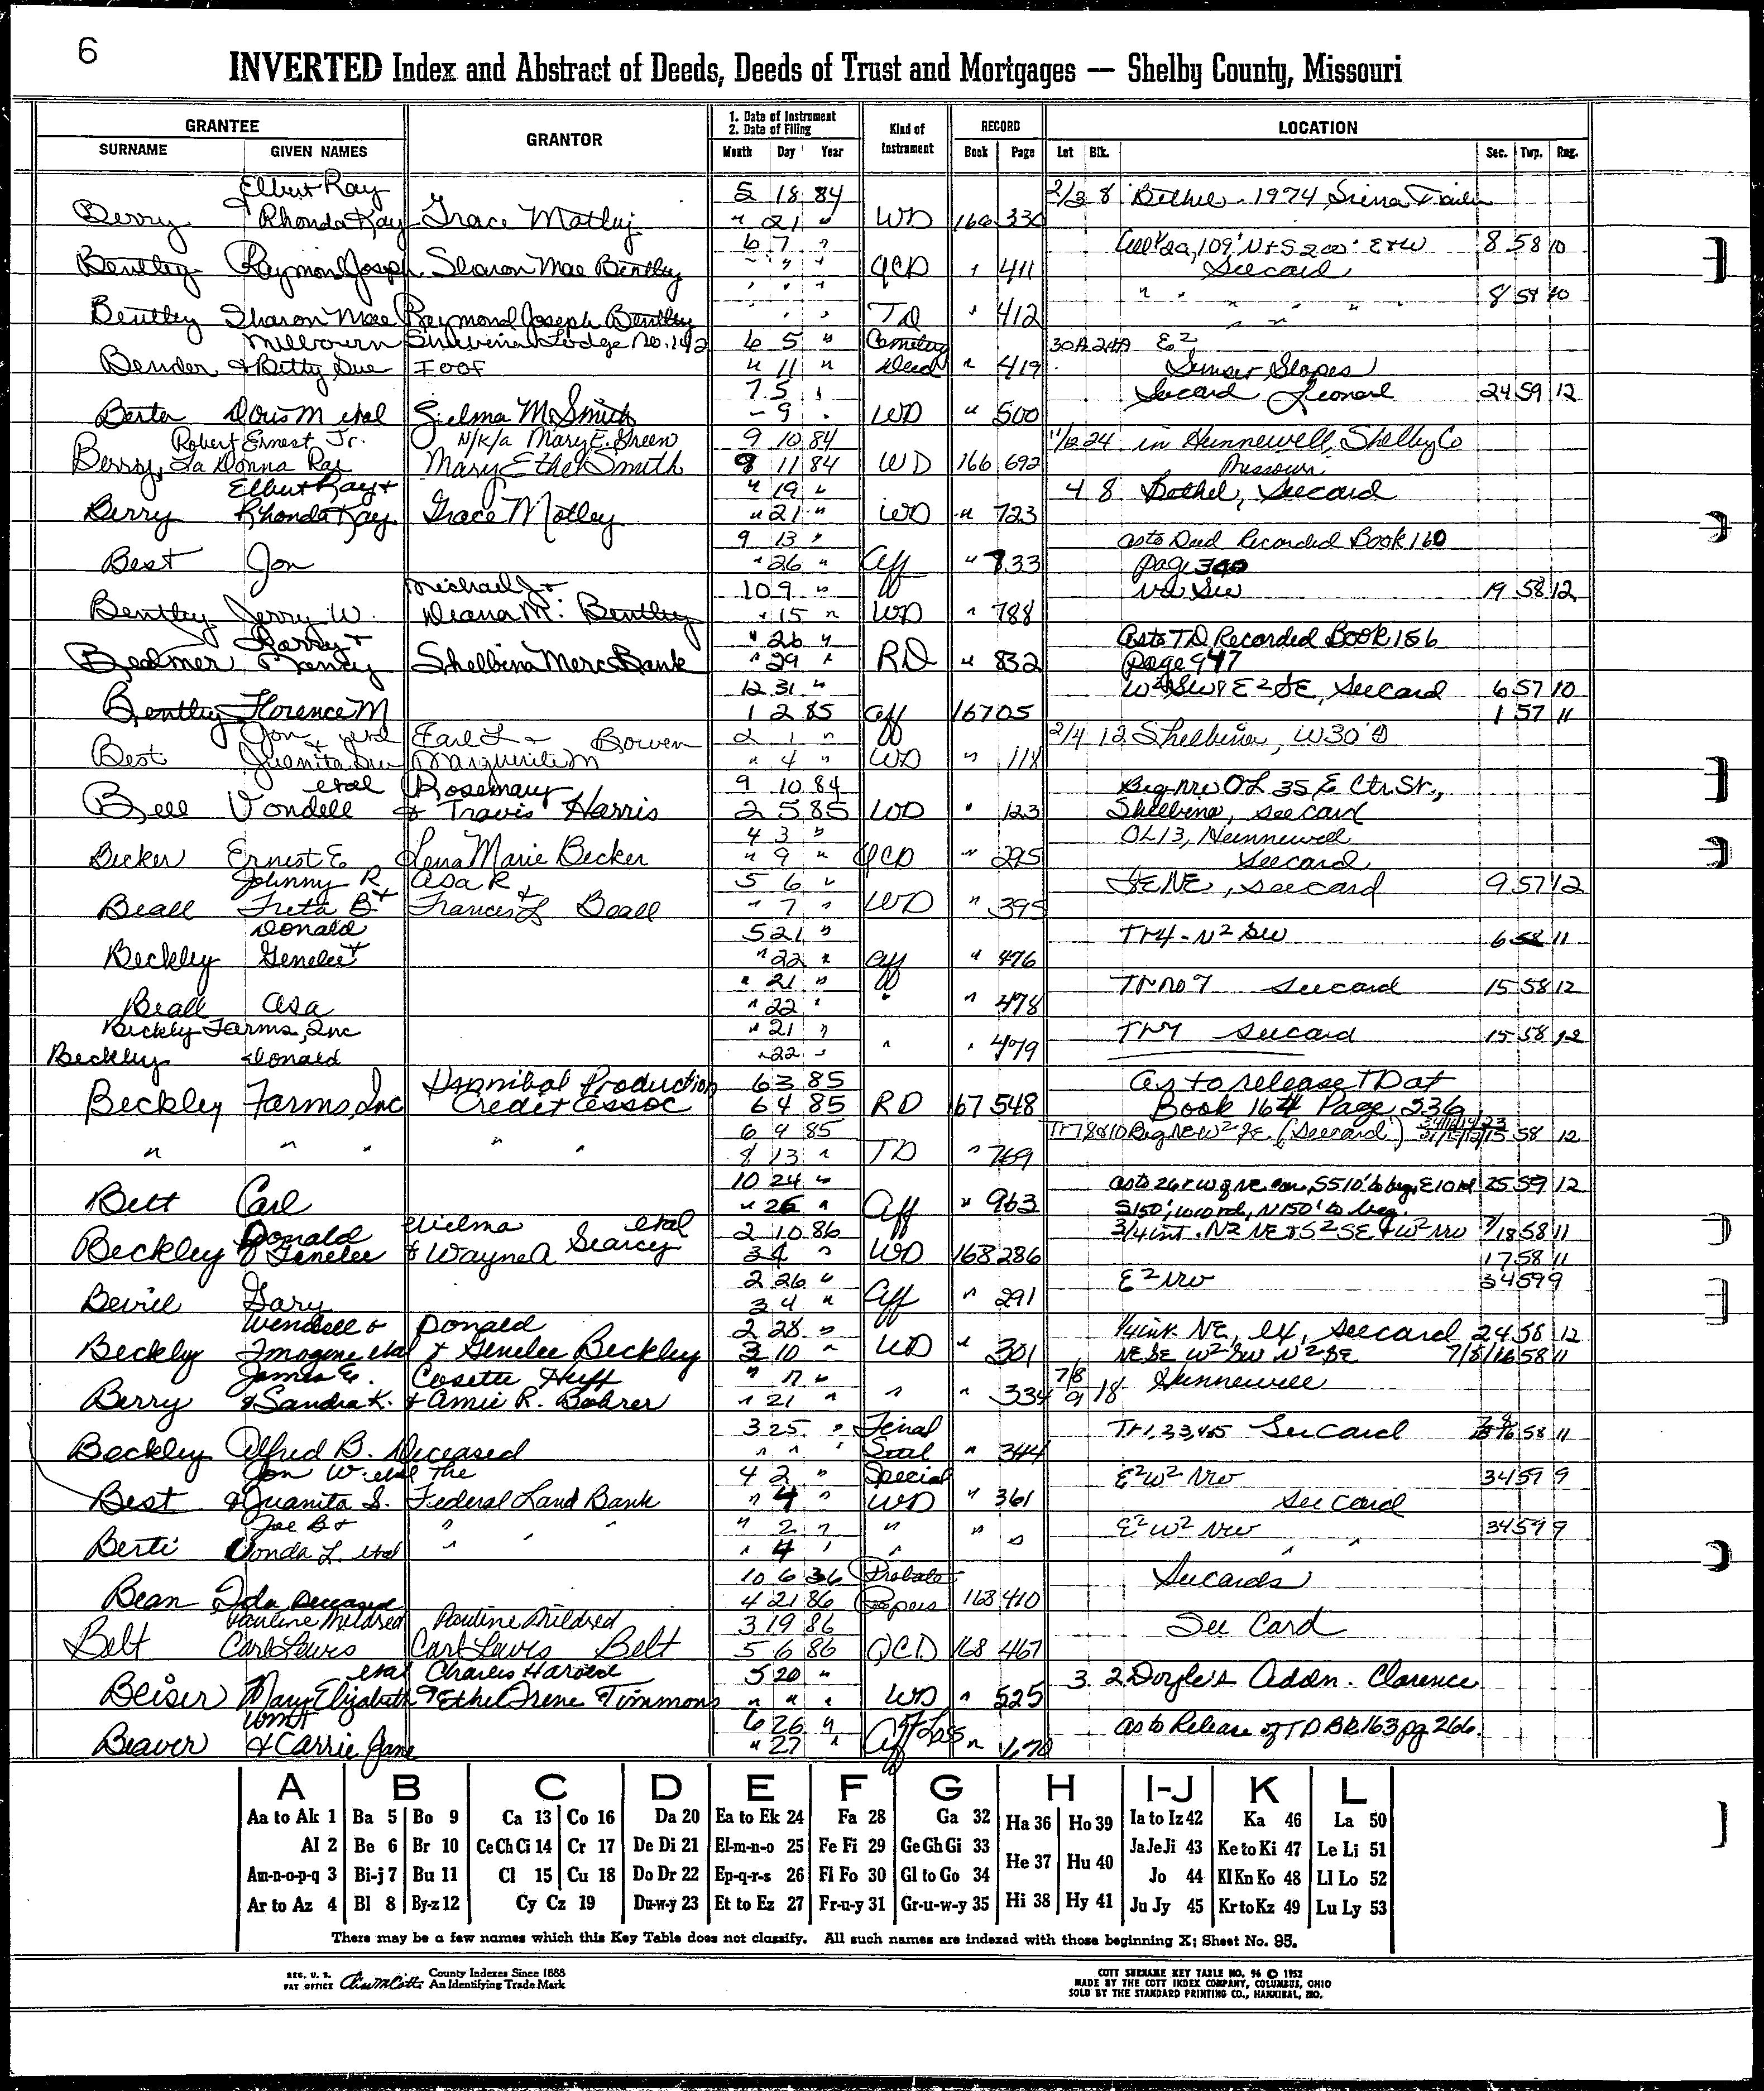 6
INVERTED Index and Abstract of Deeds, Deeds of Trust and Mortgages — Shelby County, Missouri
GRANTEE GRANTOR 1. Date of Instrument Kind of RECORD LOCATION
2. Date of Filing Instrument
SURNAME GIVEN NAMES Month Day Year Book Page Lot Blk. Sec. Twp. Rng.
Elbert Ray 5 18 84 2/3 8 Bethel - 1974
Berry & Rhonda Kay Grace Motley " 21 " WD 166 330
6 7 " 109' N+S 200' E+W 8 58 10
Bentley Raymond Joseph Sharon Mae Bentley " " " QCD " 411 Seecard
" " " " " " " " 8 58 10
Bentley Sharon Mae Raymond Joseph Bentley " " " TD " 412 " " "
Milbourn Shelbina Lodge No. 142 6 5 " Cemetery 30A 24A E2
Bender & Betty Sue IOOF " 11 " Deed " 419 Sunset Slopes
7 5 " Seecard Leonard 24 59 12
Doris M etal Zelma M Smith " 9 " WD " 500
Robert Ernest Jr. N/K/a Mary E. Green 9 10 84 11/12 24 in Hunnewell, Shelby Co
Berry, La Donna Rae Mary Ethel Smith 9 11 84 WD 166 692 Missouri
Elbert Ray + " 19 " 4 8 Bethel, Seecard
Berry Rhonda Kay Grace Motley " 21 " WD " 723
9 13 " as to Deed Recorded Book 160
Best Jon " 26 " Aff " 733 page 340
Michael J + 10 9 " 19 58 12
Bentley Jerry W. Deana M. Bentley " 15 " WD " 788
Larry + " 26 " as to TD Recorded Book 156
Nancy Shelbina Merc Bank " 29 " RD " 832 page 947
12 31 " W2 SW & E2 SE, Seecard 6 57 10
Bentley Florence M 1 2 85 Aff 167 05 1 57 11
Jon etal Earl L + Bowen 2 1 " 2/4 12 Shelbina, W30'
Best & Juanita Sue Marguerite M " 4 " WD " 118
etal Rosemary 9 10 84 Beg NW OL 35, E Ctr St.,
Bell Vondell & Travis Harris 2 5 85 WD " 123 Shelbina, seecard
4 3 " OL 13, Hunnewell
Becker Ernest E Lena Marie Becker " 9 " QCD " 295 Seecard
Johnny R Asa R 5 6 " SE NE, seecard 9 57 12
Beall Freta B + Frances L Beall " 7 " WD " 395
Donald 5 21 " Tr 4 - N2 SW 6 58 11
Beckley Genelee + " 22 " Aff " 476
" 21 " Tr no 7 Seecard 15 58 12
Beall Asa " 22 " " " 478
Beckley Farms, Inc " 21 " Tr 7 Seecard 15 58 12
Beckley Donald " 22 " " " 479
Hannibal Production 6 3 85 As to release TD at
Beckley Farms, Inc Credit Assoc 6 4 85 RD 167 548 Book 164 Page 236
6 4 85 Tr 7 8 & 10 Beg NE W2 SE (Seecard) 58 12
" " " " " 8 13 " TD " 769
10 24 " 25 59 12
Carl " 26 " Aff " 963 S150', W10rd, N150' to beg.
Donald etal 2 10 86 3/4 int. N2 NE & S2 SE & W2 NW 7/18 58 11
Beckley & Genelee & Wayne A Searcy 3 4 " WD 168 286 17 58 11
2 26 " E2 NW 34 59 9
Bevill Gary 3 4 " Aff " 291
Wendell & Donald 2 28 " 1/4 int. NE, ex, Seecard 24 58 12
Beckly Imogene etal & Genelee Beckley 3 10 " WD " 301 NE SE W2 SW N2 SE 7/8/16 58 11
James E. Cosette Huff " 17 " 7/8 Hunnewell
Berry & Sandra K. & Amie R. Bohrer " 21 " " " 334 9 18
3 25 " Final Seecard 58 11
Beckley Alfred B. Deceased " " " " 344
Jon W. etal The 4 2 " Special E2 W2 NW 34 59 9
Best & Juanita S. Federal Land Bank " 4 " WD " 361 See Card
Joe B + " " " " 2 " " " " E2 W2 NW 34 59 9
Berti Vonda L. etal " " " 4 " " " "
10 6 36 Probate Seecards
Bean Ida Deceased 4 21 86 Papers 168 410
Pauline Mildred Pauline Mildred 3 19 86 See Card
Belt Carl Lewis Carl Lewis Belt 5 6 86 QCD 168 467
etal Charles Harold 5 20 " 3 2 Doyle's Addn. Clarence
Beiser Mary Elizabeth & Ethel Irene Timmons " " " WD " 525
Wm + 6 26 " of Loss as to Release of TD Bk 163 pg 266.
Beaver & Carrie Jane " 27 " Aff " 670
A B C D E F G H I-J K L
Aa to Ak 1 Ba 5 Bo 9 Ca 13 Co 16 Da 20 Ea to Ek 24 Fa 28 Ga 32 Ha 36 Ho 39 Ia to Iz 42 Ka 46 La 50
Al 2 Be 6 Br 10 Ce Ch Ci 14 Cr 17 De Di 21 El-m-n-o 25 Fe Fi 29 Ge Gh Gi 33 He 37 Hu 40 Ja Je Ji 43 Ke to Ki 47 Le Li 51
Am-n-o-p-q 3 Bi-j 7 Bu 11 Cl 15 Cu 18 Do Dr 22 Ep-q-r-s 26 Fl Fo 30 Gl to Go 34 Jo 44 Kl Kn Ko 48 Ll Lo 52
Ar to Az 4 Bl 8 By-z 12 Cy Cz 19 Du-w-y 23 Et to Ez 27 Fr-u-y 31 Gr-u-w-y 35 Hi 38 Hy 41 Ju Jy 45 Kr to Kz 49 Lu Ly 53
There may be a few names which this Key Table does not classify. All such names are indexed with those beginning X; Sheet No. 95.
REG. U. S. PAT OFFICE County Indexes Since 1888 An Identifying Trade Mark
COTT SURNAME KEY TABLE NO. 96 © 1952
MADE BY THE COTT INDEX COMPANY, COLUMBUS, OHIO
SOLD BY THE STANDARD PRINTING CO., HANNIBAL, MO.